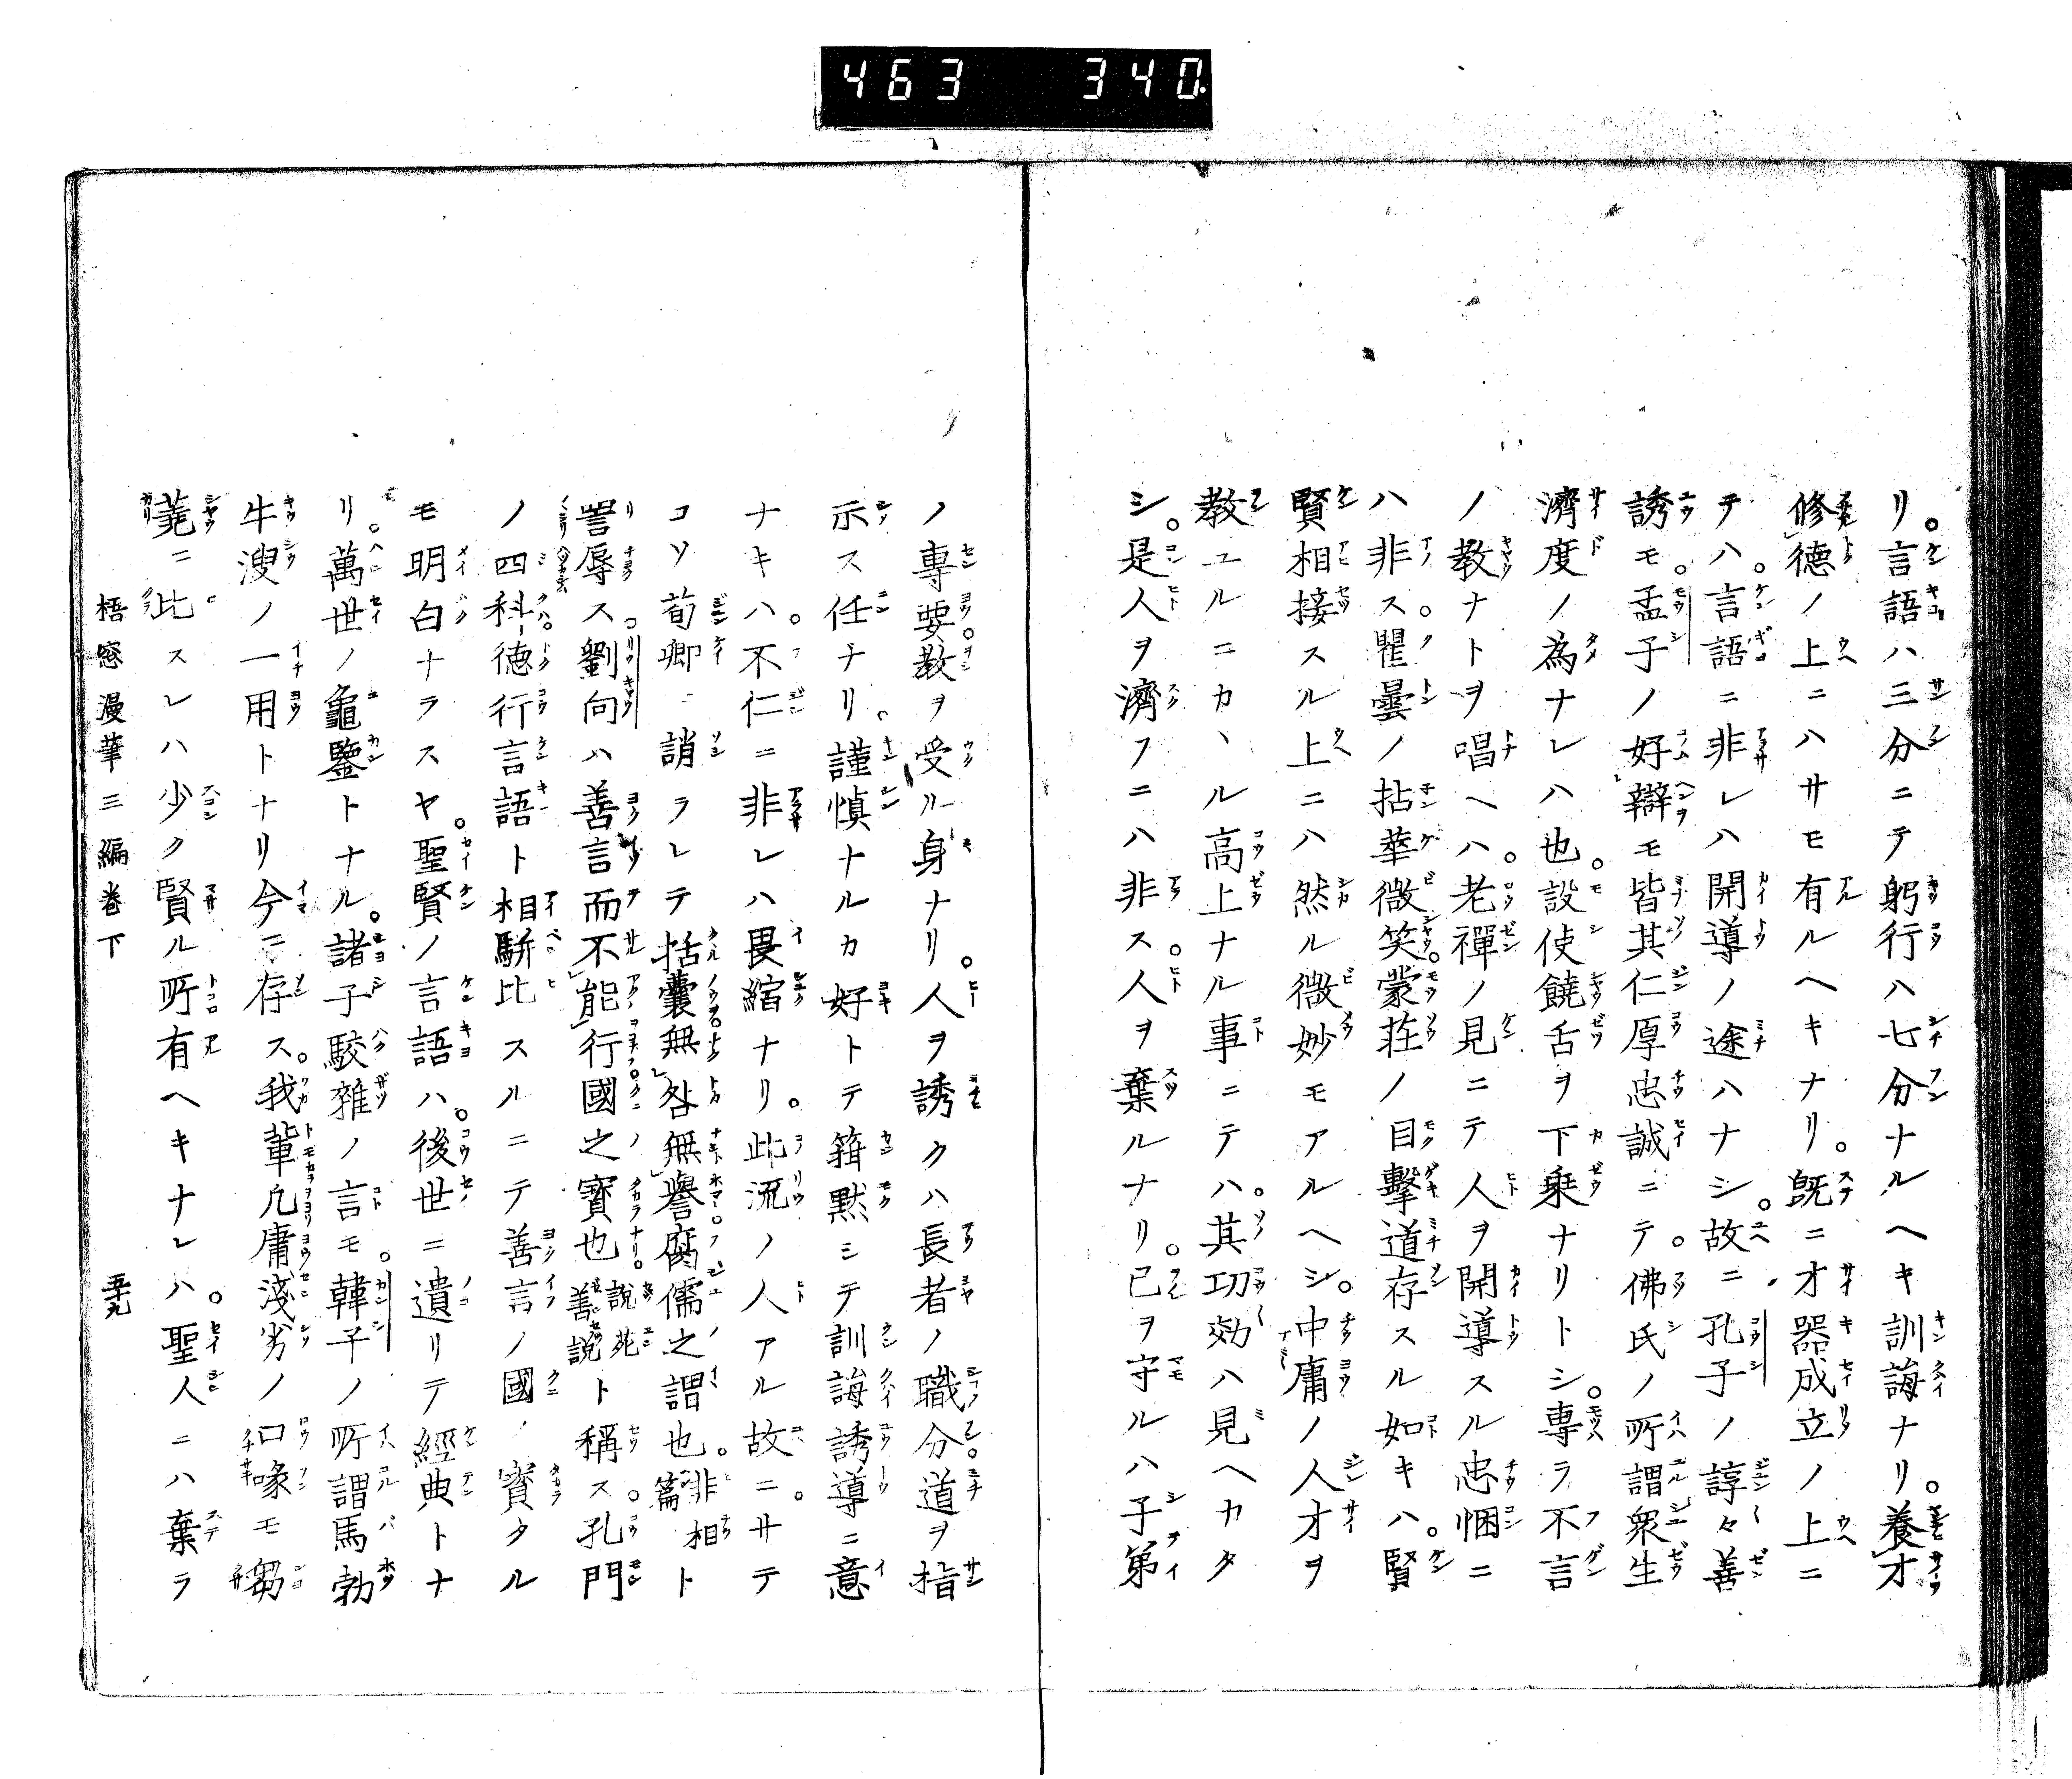 463 340
リ。言語ハ三分ニテ躬行ハ七分ナルヘキ訓誨ナリ。養才
修德ノ上ニハサモ有ルヘキナリ。既ニ才器成立ノ上ニ
テハ。言語ニ非レハ開導ノ途ハナシ。故ニ孔子ノ諄々善
誘モ。孟子ノ好辯モ皆其仁厚忠誠ニテ。佛氏ノ所謂衆生
濟度ノ為ナレハ也。設使饒舌ヲ下乗ナリトシ。專ラ不言
ノ教ナトヲ唱ヘハ。老禪ノ見ニテ人ヲ開導スル忠悃ニ
ハ非ス。瞿曇ノ拈華微笑。蒙莊ノ目擊道存スル如キハ。賢
賢相接スル上ニハ然ル微妙モアルヘシ。中庸ノ人才ヲ
教ユルニカヽル高上ナル事ニテハ。其功効ハ見ヘカタ
シ。是人ヲ濟フニハ非ス。人ヲ棄ルナリ。己ヲ守ルハ子第
ノ專要。教ヲ受ル身ナリ。人ヲ誘クハ長者ノ職分。道ヲ指
示ス任ナリ。謹慎ナルカ好トテ箝黙シテ訓誨誘導ニ意
ナキハ。不仁ニ非レハ畏縮ナリ。此流ノ人アル故ニ。サテ
コソ荀卿ニ誚ラレテ括囊無咎無譽。腐儒之謂也。非相篇ト
詈辱ス。劉向ハ善言而不能行國之寳也。說苑善說ト稱ス。孔門
ノ四科德行言語ト相駢比スルニテ善言ノ國ノ寳タル
モ明白ナラスヤ。聖賢ノ言語ハ。後世ニ遺リテ經典トナ
リ。萬世ノ龜鑒トナル。諸子駮雜ノ言モ。韓子ノ所謂馬勃
牛溲ノ一用トナリ今ニ存ス。我輩凢庸淺劣ノ口喙モ芻
蕘ニ比スレハ少ク賢ル所有ヘキナレハ。聖人ニハ棄ラ
梧窓漫筆三編卷下 五十九